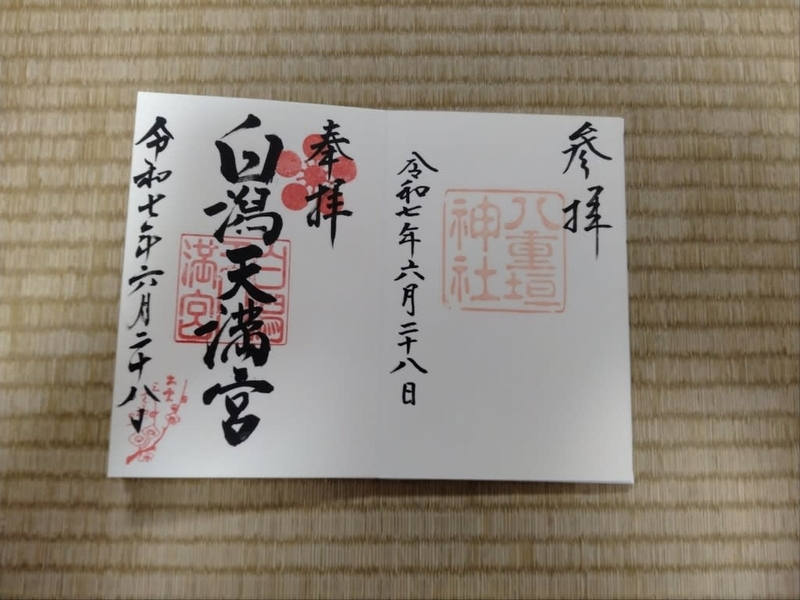 参拝
八重垣
神社
令和七年六月二十八日
奉拝
白潟天満宮
白潟
天
満宮
令和七年六月二十八日